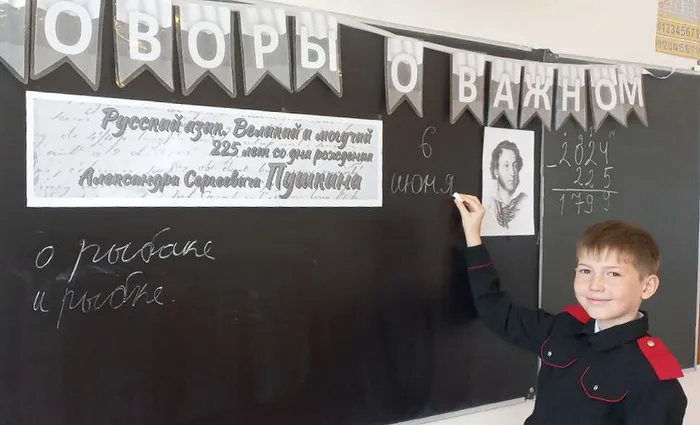 ОВОРЫ О ВАЖНОМ
Русский язык. Великий и могучий
225 лет со дня рождения
Александра Сергеевича Пушкина
6
июня
о рыбаке
и рыбке.
- 2024
225
1799